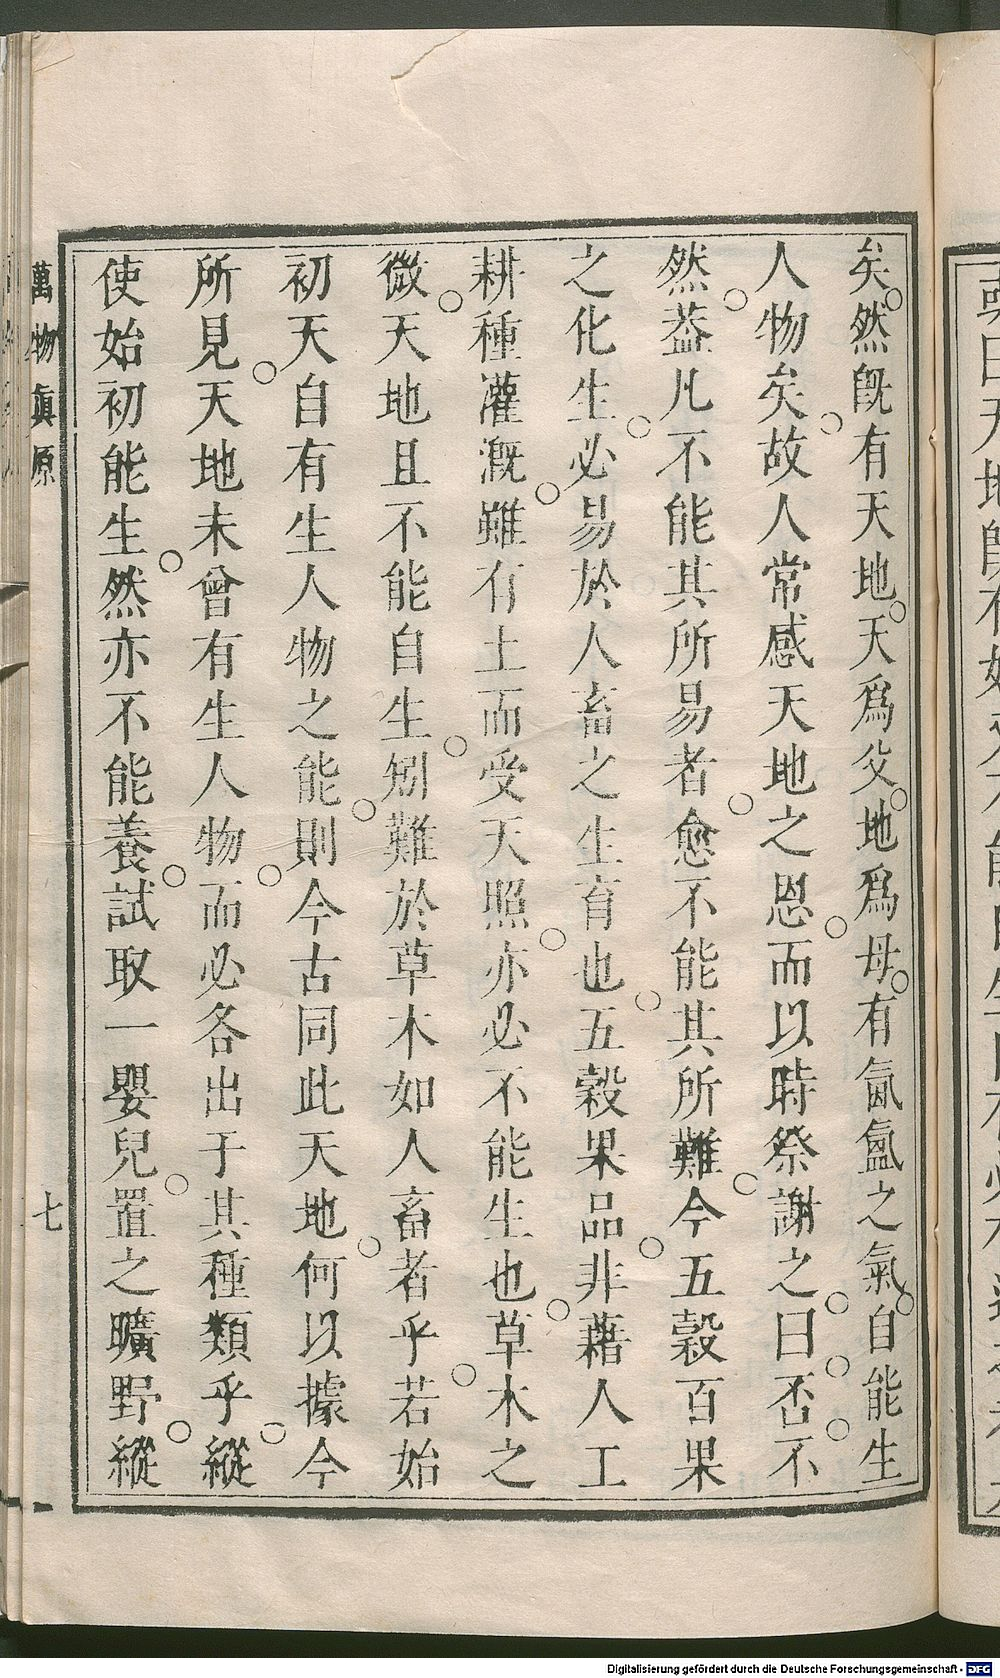 矣。然旣有天地。天爲父。地爲母。有氤氳之氣。自能生
人物矣。故人常感天地之恩。而以時祭謝之。曰。否。不
然。葢凡不能其所易者。愈不能其所難。今五穀百果
之化生。必易於人畜之生育也。五穀果品。非藉人工
耕種灌溉。雖有土而受天照。亦必不能生也。草木之
微。天地且不能自生。矧難於草木如人畜者乎。若始
初天自有生人物之能。則今古同此天地。何以據今
所見。天地未曾有生人物。而必各出于其種類乎。縱
使始初能生。然亦不能養。試取一嬰兒。置之曠野。縱
萬物眞原
七
Digitalisierung gefördert durch die Deutsche Forschungsgemeinschaft - DFG